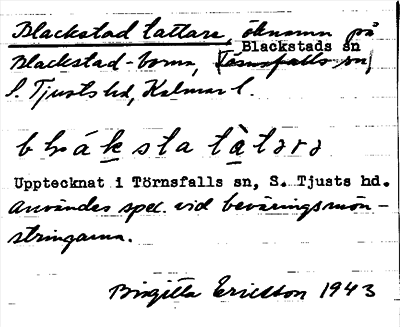 Blackstad tattare, öknamn på
Blackstads sn
Blackstad-borna, [Törnsfalls sn]
S. Tjusts hd, Kalmar l.
bláksta tàtərə
Upptecknat i Törnsfalls sn, S. Tjusts hd.
Användes spec. vid beväringsmön-
stringarna.
Birgitta Ericsson 1943